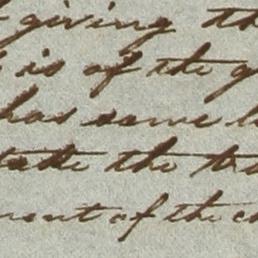 giving th
is of the g
has some l
state the tra
ment of the c